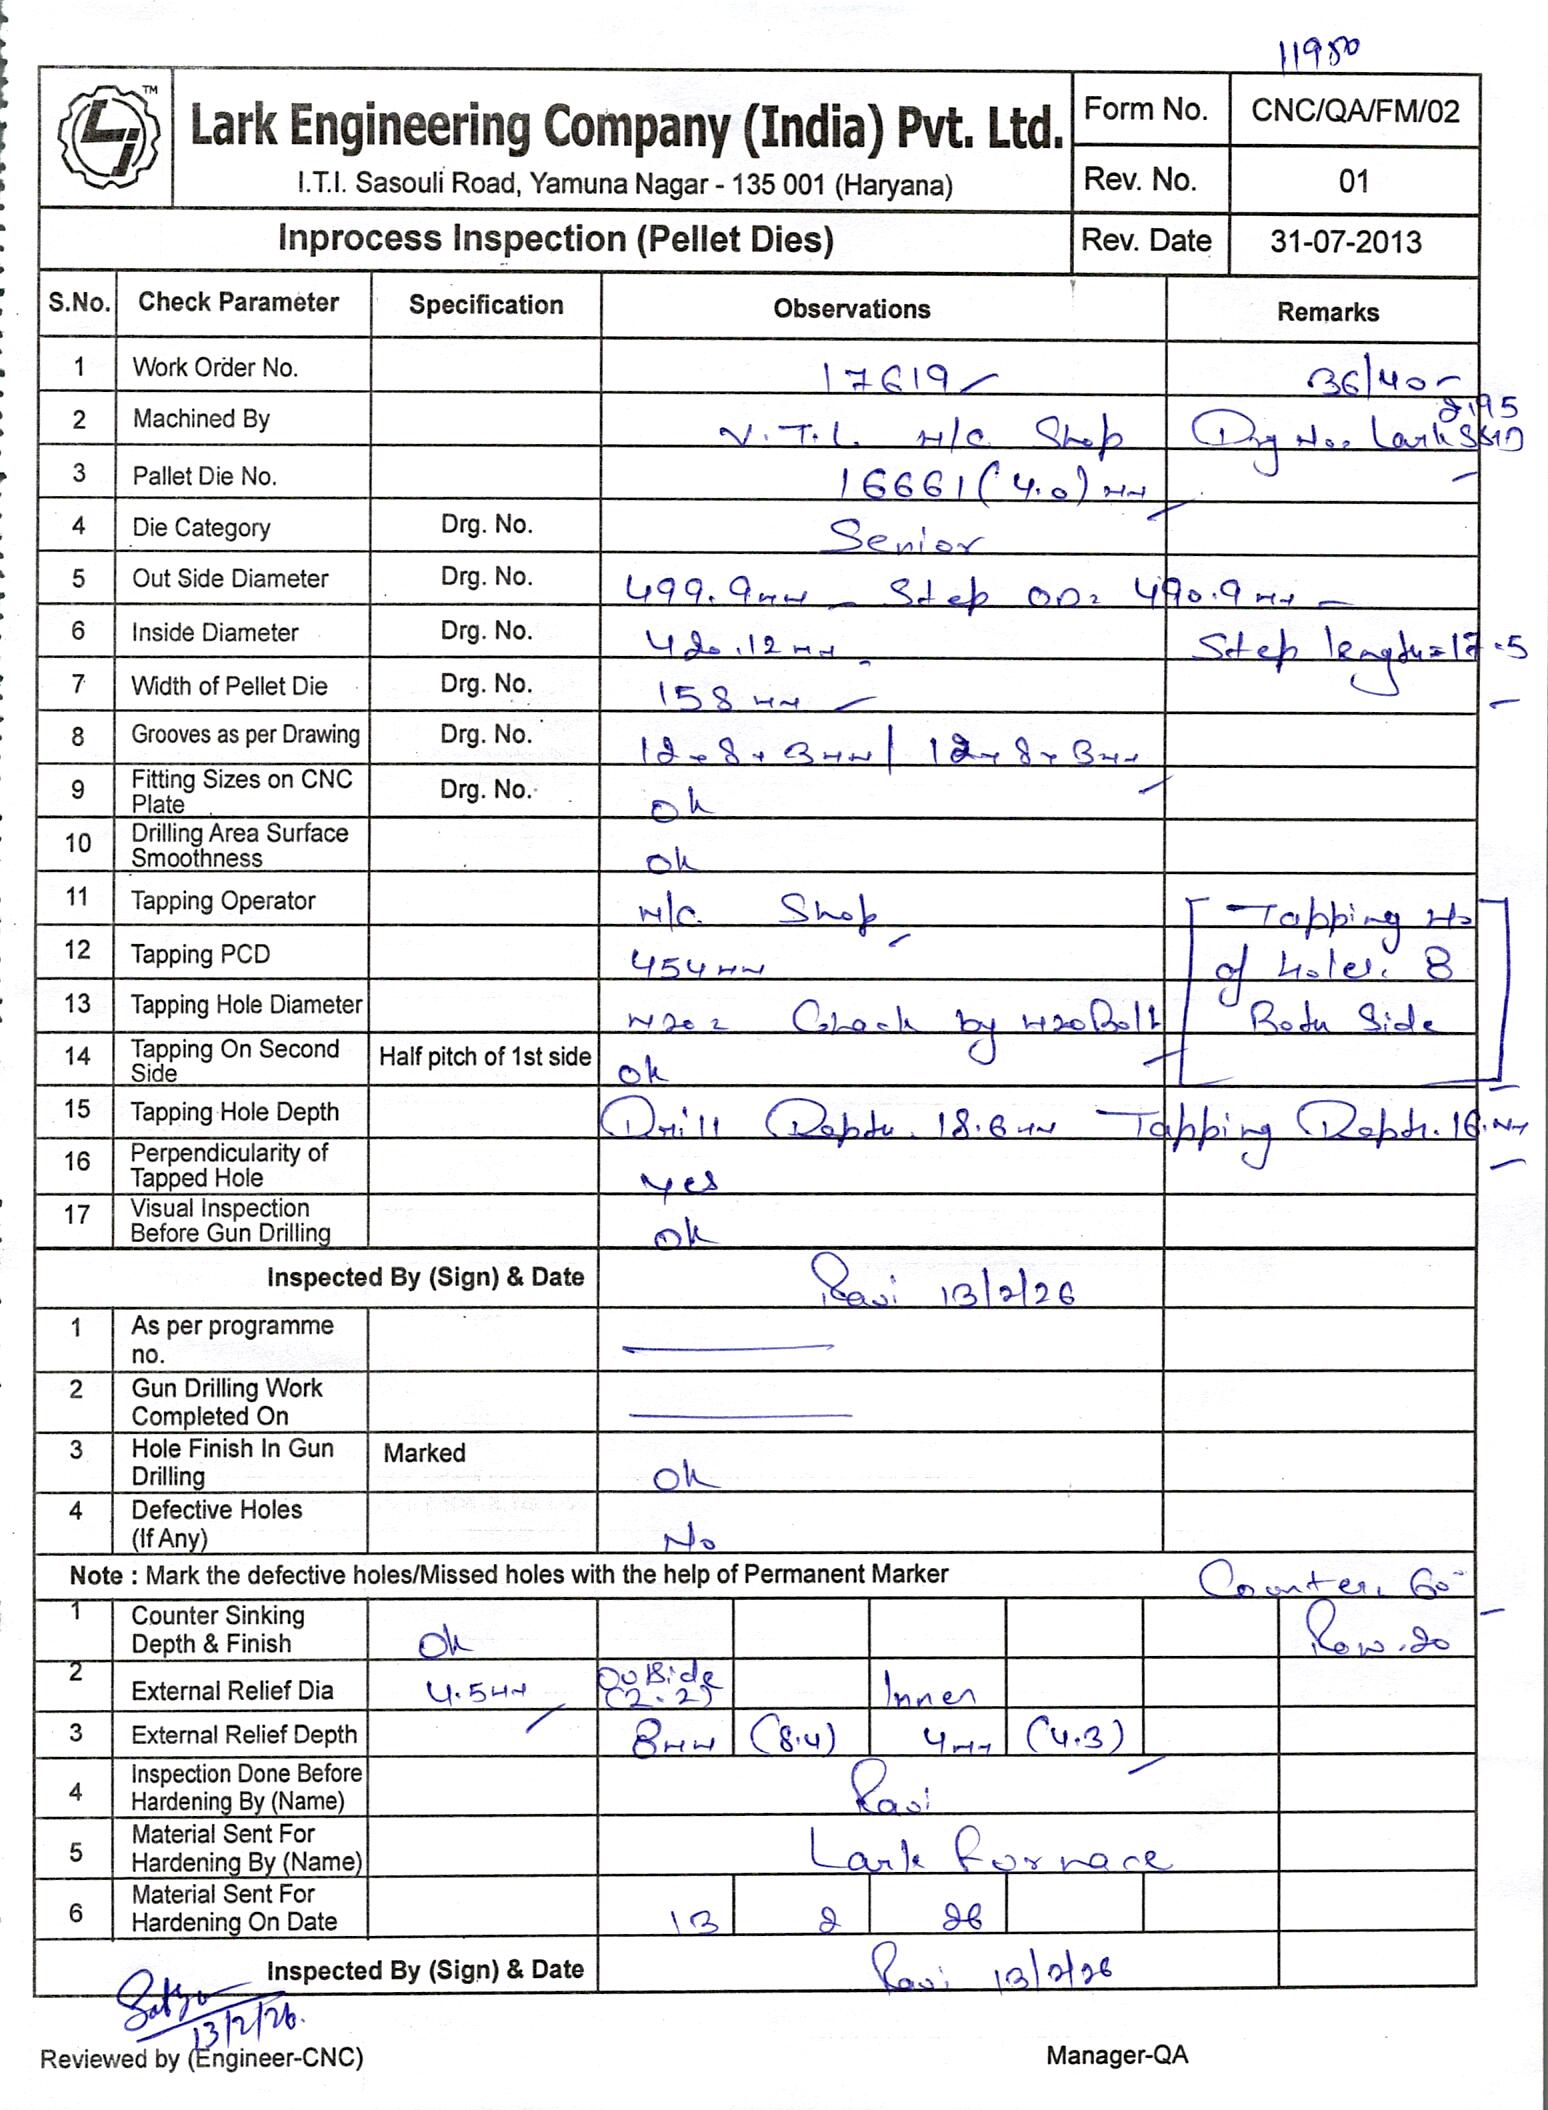 11980
TM
Lark Engineering Company (India) Pvt. Ltd.
I.T.I. Sasouli Road, Yamuna Nagar - 135 001 (Haryana)
Form No. CNC/QA/FM/02
Rev. No. 01
Inprocess Inspection (Pellet Dies)
Rev. Date 31-07-2013
S.No. Check Parameter Specification Observations Remarks
1 Work Order No. 17619 36/40
2 Machined By V.T.L. M/C Shop Drg No. Lark
3 Pallet Die No. 16661 (4.0) mm
4 Die Category Drg. No. Senior
5 Out Side Diameter Drg. No. 499.9mm Step OD= 490.9 mm
6 Inside Diameter Drg. No. 420.12 mm Step length=17.5
7 Width of Pellet Die Drg. No. 158 mm
8 Grooves as per Drawing Drg. No. 12×8×3mm / 12×8×3mm
9 Fitting Sizes on CNC Plate Drg. No. Ok
10 Drilling Area Surface Smoothness Ok
11 Tapping Operator M/C Shop Tapping No
12 Tapping PCD 454mm of holes. 8
13 Tapping Hole Diameter M20= Check by M20 Bolt Both Side
14 Tapping On Second Side Half pitch of 1st side Ok
15 Tapping Hole Depth Drill Depth. 18.6mm Tapping Depth. 16.mm
16 Perpendicularity of Tapped Hole Yes
17 Visual Inspection Before Gun Drilling Ok
Inspected By (Sign) & Date Ravi 13/2/26
1 As per programme no.
2 Gun Drilling Work Completed On
3 Hole Finish In Gun Drilling Marked Ok
4 Defective Holes (If Any) No
Note : Mark the defective holes/Missed holes with the help of Permanent Marker Counter. 60°
1 Counter Sinking Depth & Finish Ok Row.20
2 External Relief Dia 4.5mm Outside (2.2) Inner
3 External Relief Depth 8mm (8.4) 4mm (4.3)
4 Inspection Done Before Hardening By (Name) Ravi
5 Material Sent For Hardening By (Name) Lark Furnace
6 Material Sent For Hardening On Date 13 2 26
Inspected By (Sign) & Date Ravi 13/2/26
13/2/26.
Reviewed by (Engineer-CNC) Manager-QA